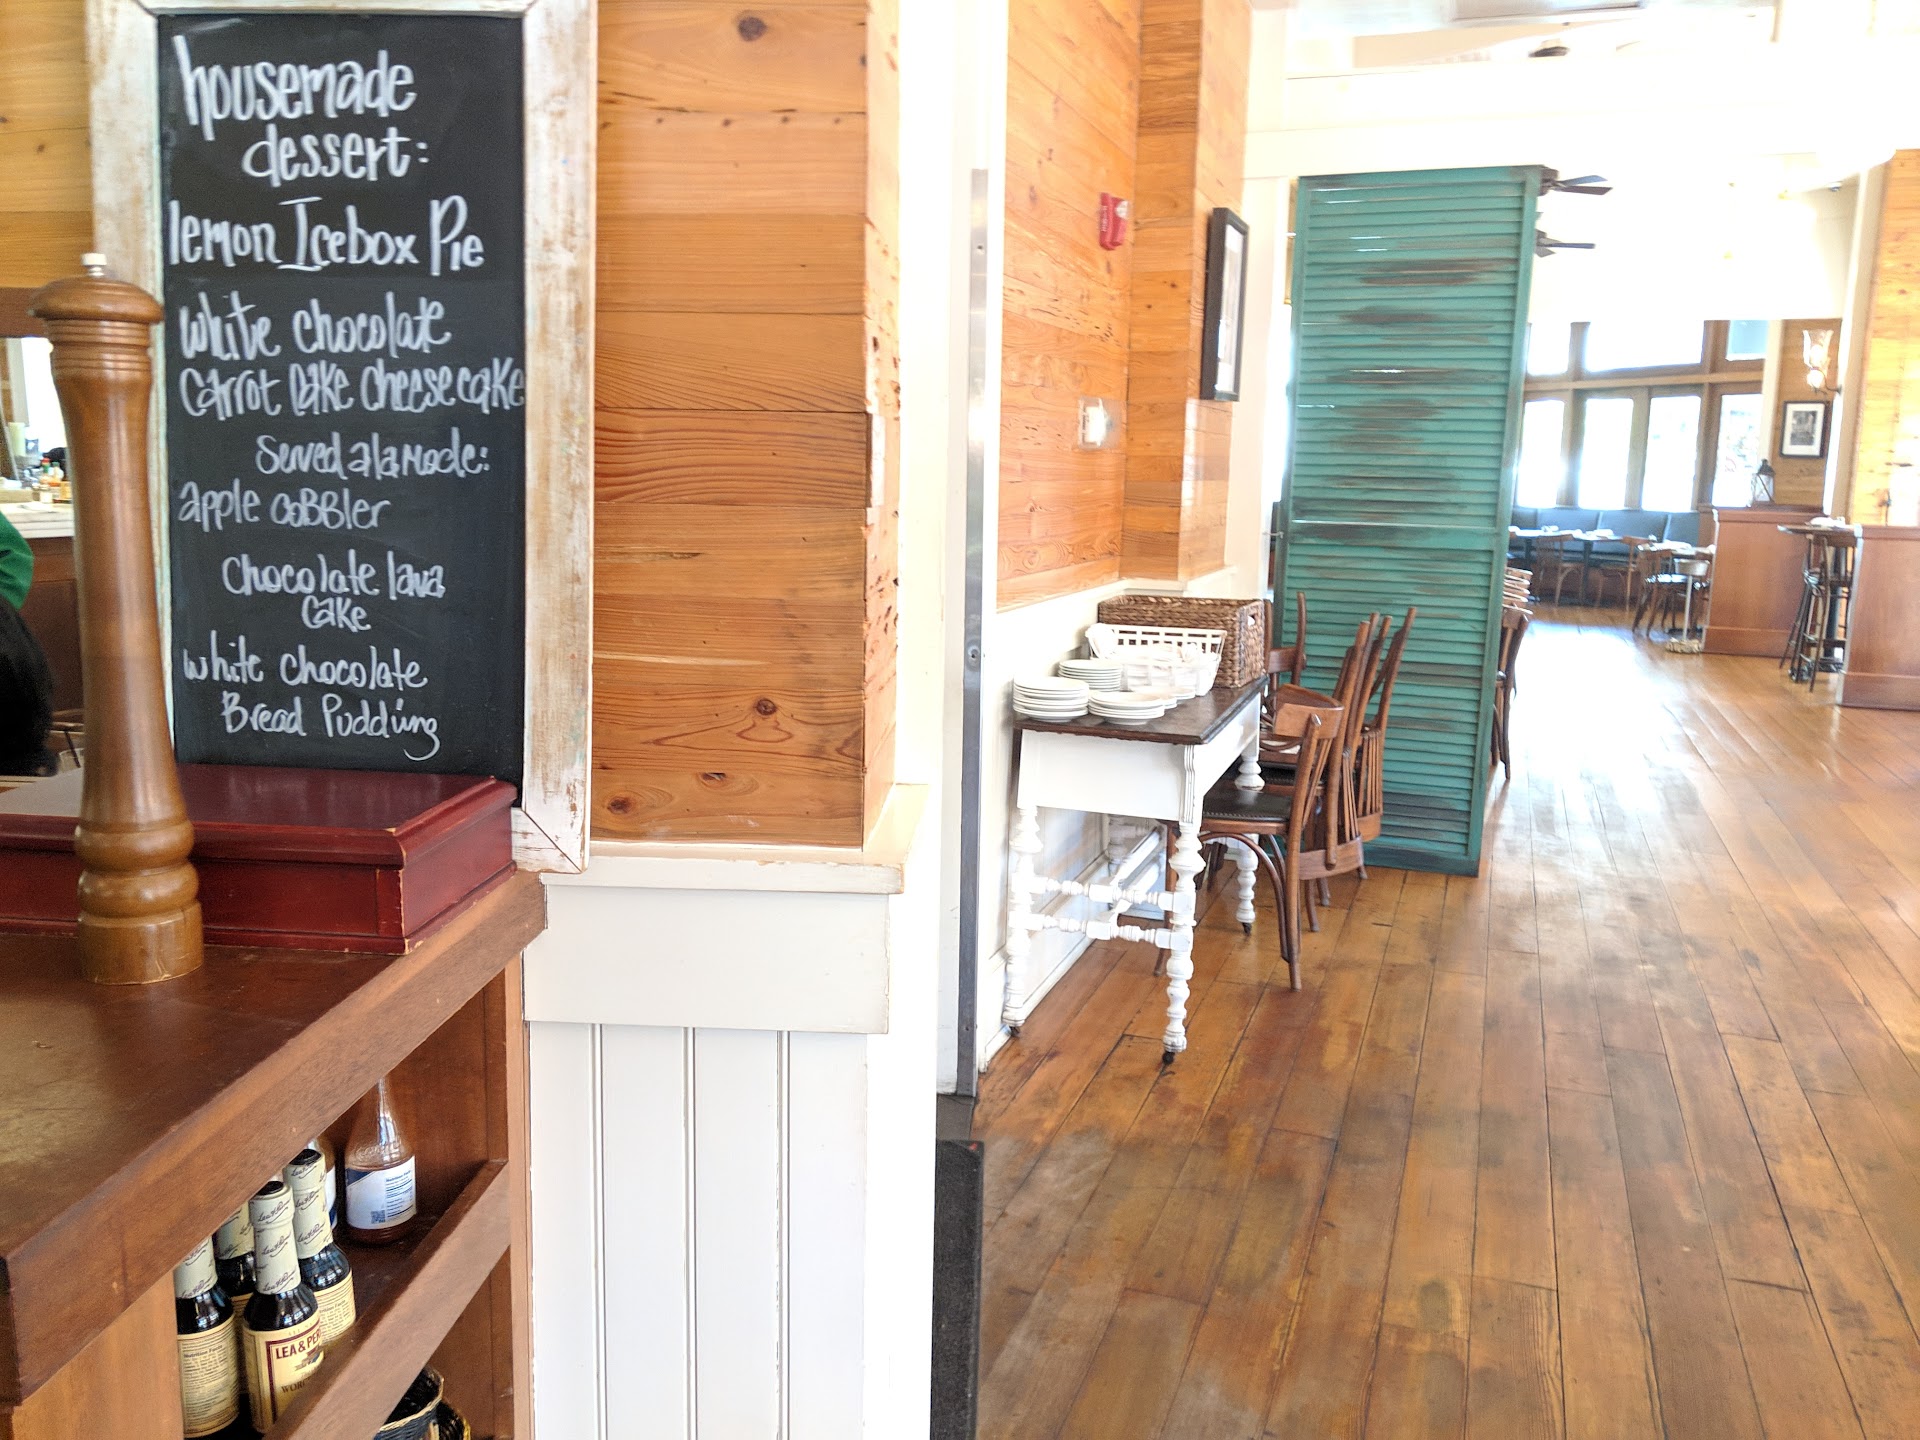 housemade
dessert:
lemon Icebox Pie
white chocolate
carrot cake cheesecake
Served alamode:
apple cobbler
chocolate lava
cake
white chocolate
Bread Pudding
LEA & PER
WOR